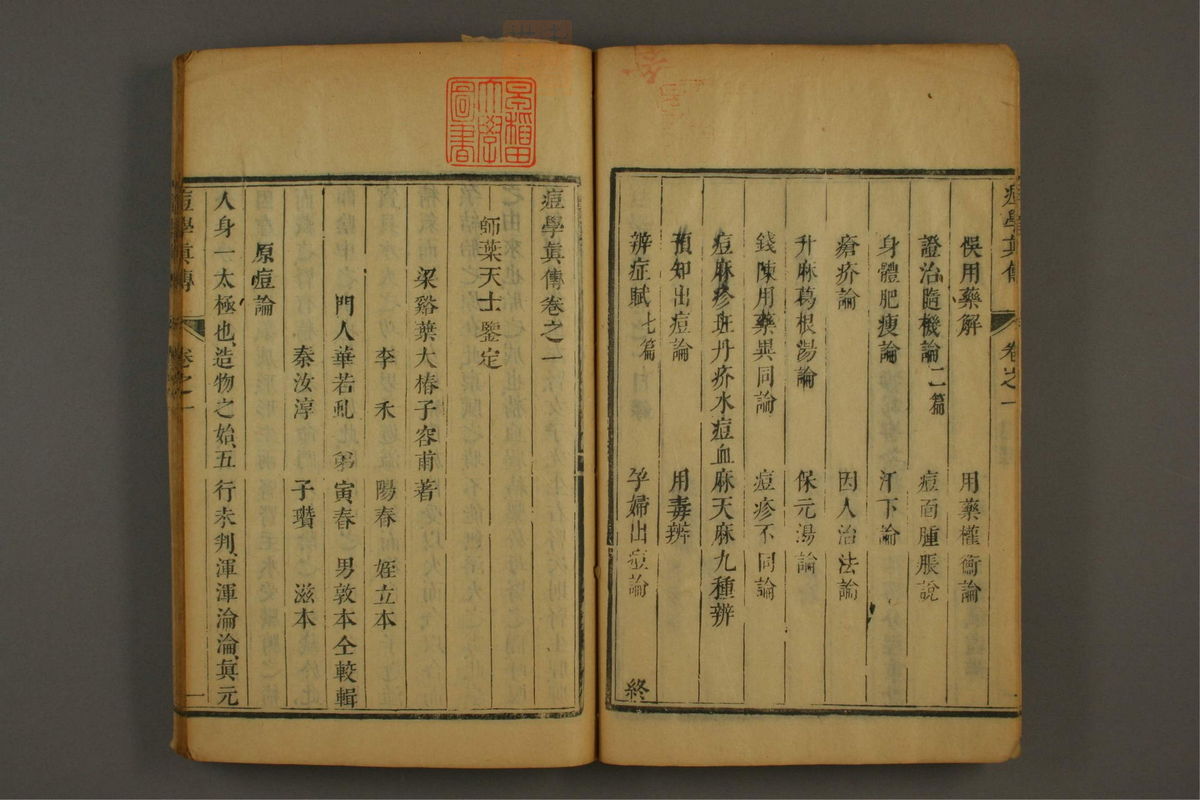 俁用藥解 用藥權衡論
證治隨機論二篇 痘面腫脹說
身體肥瘦論 汗下論
瘡疥論 因人治法論
升麻葛根湯論 保元湯論
錢陳用藥異同論 痘疹不同論
痘麻疹斑丹疥水痘血麻天麻九種辨
預知出痘論 用毒辨
辨症賦七篇 孕婦出痘論 終
痘學眞傳 卷之一
痘學眞傳卷之一
師葉天士鑒定
梁谿葉大椿子容甫著
李 禾 陽春 姪立本
門人華若虬 弟寅春 男敦本仝較輯
秦汝淳 子瓚 滋本
原痘論
人身一太極也造物之始五行未判渾渾淪淪眞元
痘學眞傳 卷之一 一